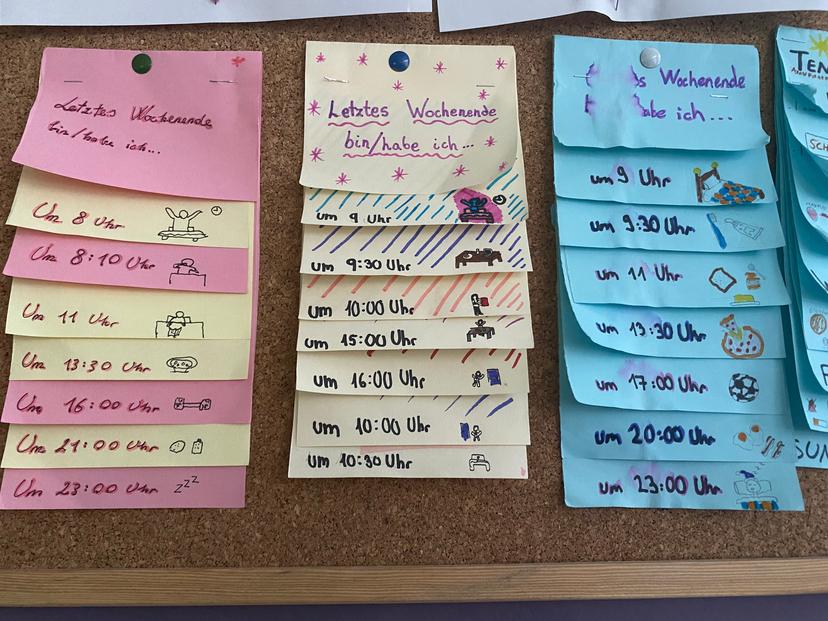 Letztes Wochenende
bin/habe ich...
Um 8 Uhr
Um 8:10 Uhr
Um 11 Uhr
Um 13:30 Uhr
Um 16:00 Uhr
Um 21:00 Uhr
Um 23:00 Uhr
zzz
Letztes Wochenende
bin/habe ich...
um 9 Uhr
um 9:30 Uhr
um 10:00 Uhr
um 15:00 Uhr
um 16:00 Uhr
um 10:00 Uhr
um 10:30 Uhr
s Wochenende
abe ich...
um 9 Uhr
um 9:30 Uhr
um 11 Uhr
um 13:30 Uhr
um 17:00 Uhr
um 20:00 Uhr
um 23:00 Uhr
TEN
SCH
SUN